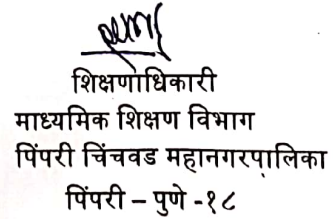 शिक्षणाधिकारी
माध्यमिक शिक्षण विभाग
पिंपरी चिंचवड महानगरपालिका
पिंपरी – पुणे -१८